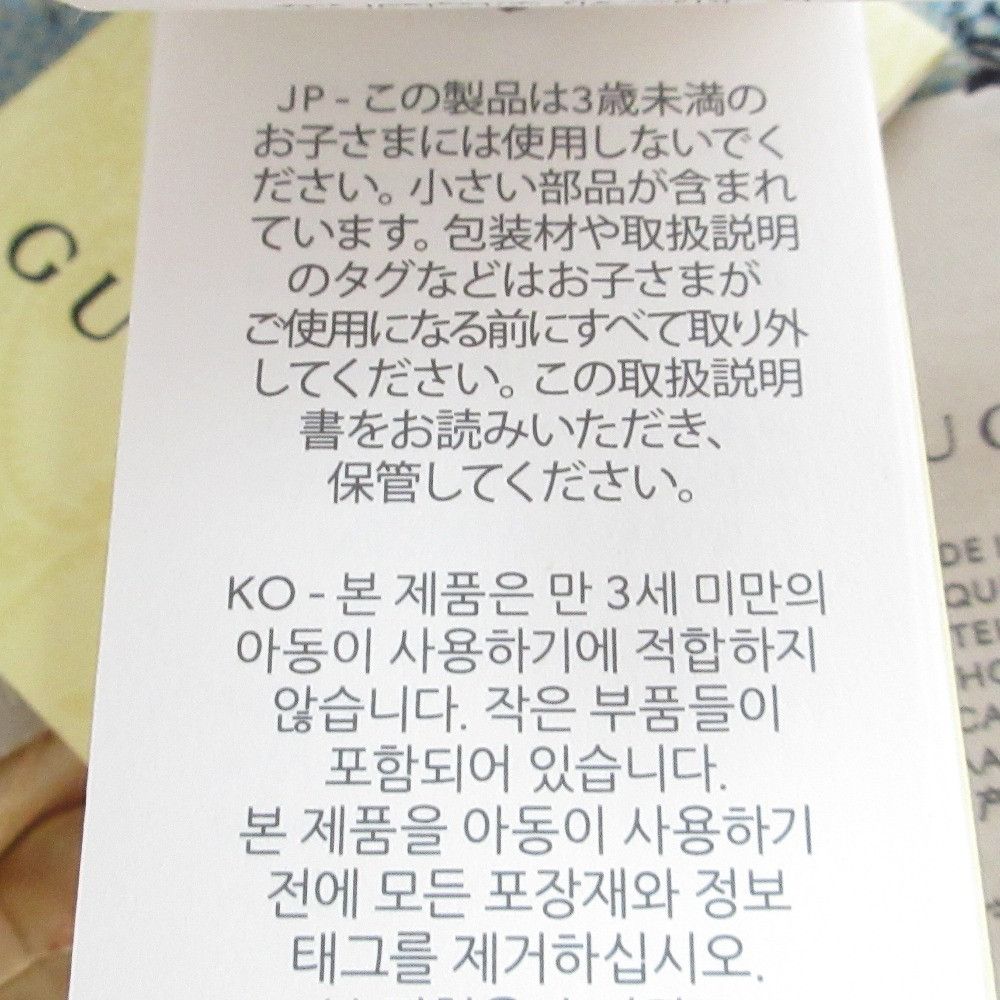 JP - この製品は3歳未満の
お子さまには使用しないでく
ださい。小さい部品が含まれ
ています。包装材や取扱説明
のタグなどはお子さまが
ご使用になる前にすべて取り外
してください。この取扱説明
書をお読みいただき、
保管してください。
KO - 본 제품은 만 3세 미만의
아동이 사용하기에 적합하지
않습니다. 작은 부품들이
포함되어 있습니다.
본 제품을 아동이 사용하기
전에 모든 포장재와 정보
태그를 제거하십시오.
GU
DE
QU
TE
HO
CA